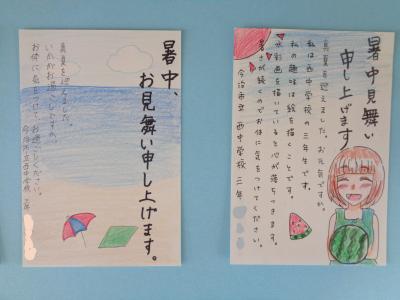 暑中、
お見舞い申し上げます。
真夏を迎えました。
いかがお過ごしですか。
お体に気をつけて、お過ごしください。
今治市立西中学校 三年
暑中見舞い
申し上げます
真夏を迎えました。お元気ですか。
私は西中学校の三年生です。
私の趣味は絵を描くことです。
水彩画を描いていると心が落ちつきます。
暑さが続くのでお体に気をつけてください。
今治市立 西中学校 三年